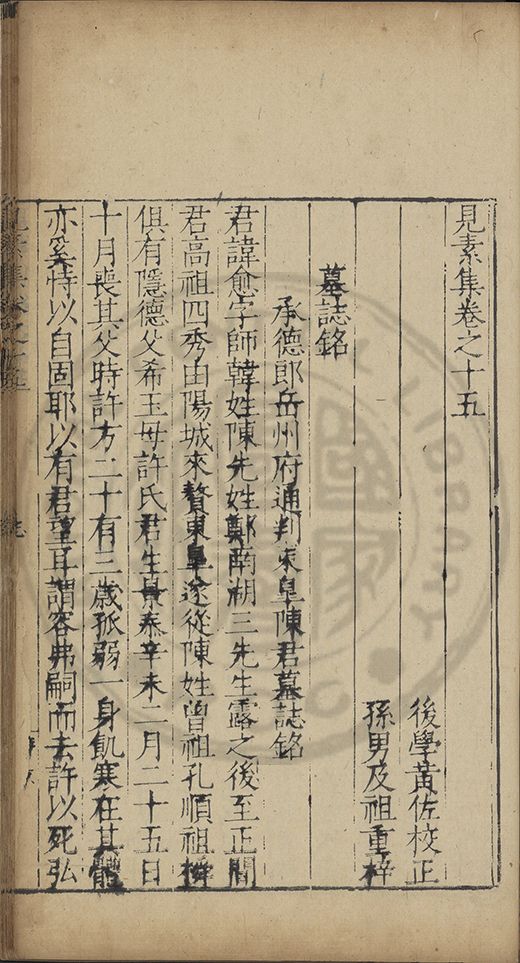 見素集卷之十五
後學黃佐校正
孫男及祖重梓
墓誌銘
承德郎岳州府通判東皐陳君墓誌銘
君諱愈字師韓姓陳先姓鄭南湖三先生露之後至正間
君高祖四秀由陽城來贅東皐遂從陳姓曾祖孔順祖
俱有隱德父希玉母許氏君生景泰辛未二月二十五日
十月喪其父時許方二十有三歲孤弱一身飢寒在其體
亦奚恃以自固耶以有君望耳謂容弗嗣而去許以死弘